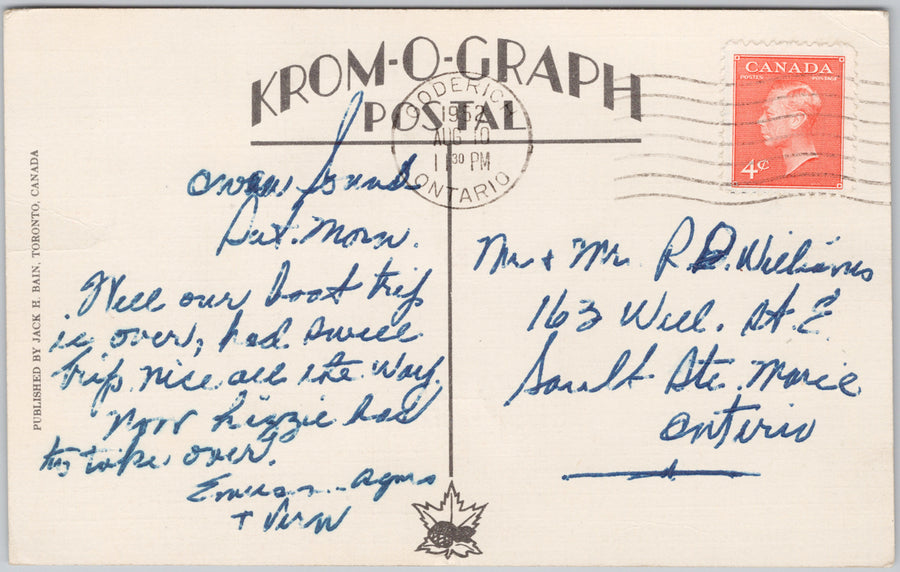 KROM-O-GRAPH
POSTAL
GODERICH
1952
AUG 10
30 PM
ONTARIO
CANADA
POSTES POSTAGE
4¢
PUBLISHED BY JACK H. BAIN, TORONTO, CANADA
Owen Sound
Sat. Morn.
Well our boat trip
is over, had swell
trip nice all the way.
Now Lizzie had
to take over.
Agnes
+ Vern
Mr + Mr R.D. Williams
163 Well. St. E
Sault Ste. Marie
Ontario